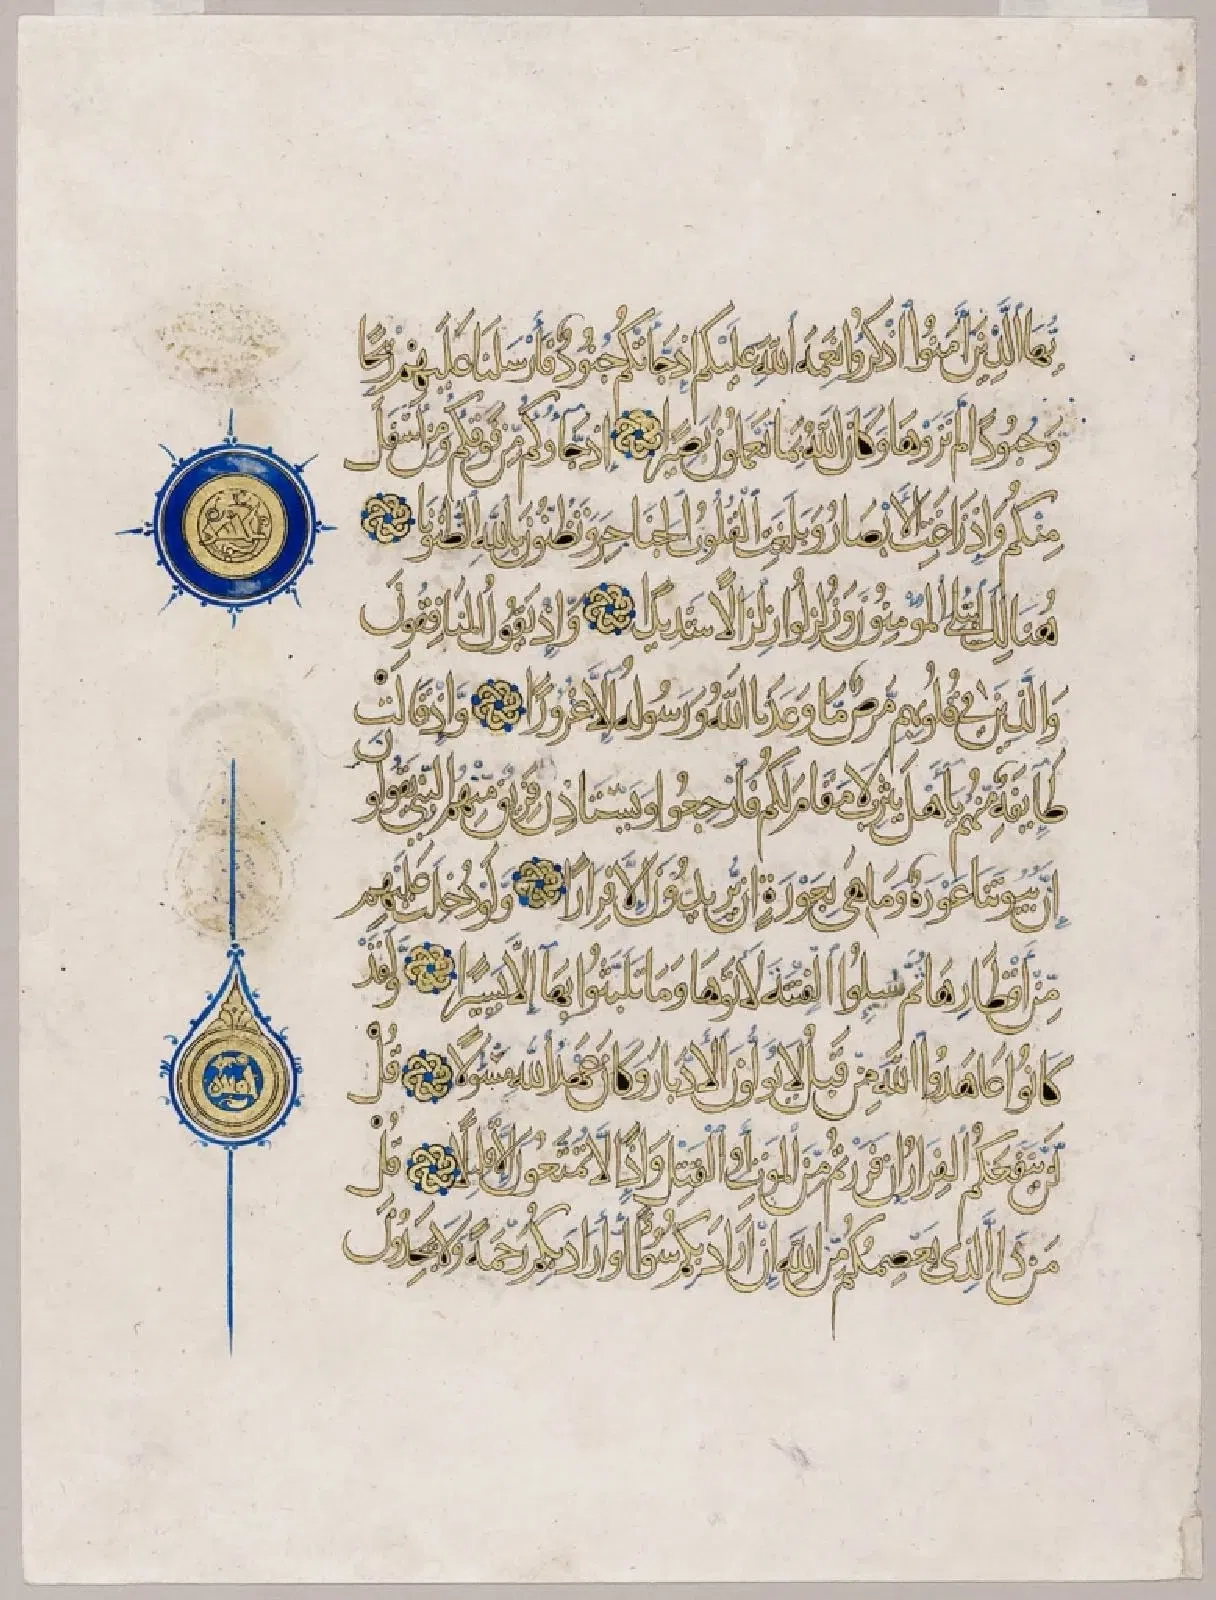 يُّهَا الَّذِينَ آمَنُوا اذْكُرُوا نِعْمَةَ اللَّهِ عَلَيْكُمْ إِذْ جَاءَتْكُمْ جُنُودٌ فَأَرْسَلْنَا عَلَيْهِمْ رِيحًا
وَجُنُودًا لَمْ تَرَوْهَا وَكَانَ اللَّهُ بِمَا تَعْمَلُونَ بَصِيرًا إِذْ جَاءُوكُمْ مِنْ فَوْقِكُمْ وَمِنْ أَسْفَلَ
مِنْكُمْ وَإِذْ زَاغَتِ الْأَبْصَارُ وَبَلَغَتِ الْقُلُوبُ الْحَنَاجِرَ وَتَظُنُّونَ بِاللَّهِ الظُّنُونَا
هُنَالِكَ ابْتُلِيَ الْمُؤْمِنُونَ وَزُلْزِلُوا زِلْزَالًا شَدِيدًا وَإِذْ يَقُولُ الْمُنَافِقُونَ
وَالَّذِينَ فِي قُلُوبِهِمْ مَرَضٌ مَا وَعَدَنَا اللَّهُ وَرَسُولُهُ إِلَّا غُرُورًا وَإِذْ قَالَتْ
طَائِفَةٌ مِنْهُمْ يَا أَهْلَ يَثْرِبَ لَا مَقَامَ لَكُمْ فَارْجِعُوا وَيَسْتَأْذِنُ فَرِيقٌ مِنْهُمُ النَّبِيَّ يَقُولُونَ
إِنَّ بُيُوتَنَا عَوْرَةٌ وَمَا هِيَ بِعَوْرَةٍ إِنْ يُرِيدُونَ إِلَّا فِرَارًا وَلَوْ دُخِلَتْ عَلَيْهِمْ
مِنْ أَقْطَارِهَا ثُمَّ سُئِلُوا الْفِتْنَةَ لَآتَوْهَا وَمَا تَلَبَّثُوا بِهَا إِلَّا يَسِيرًا وَلَقَدْ
كَانُوا عَاهَدُوا اللَّهَ مِنْ قَبْلُ لَا يُوَلُّونَ الْأَدْبَارَ وَكَانَ عَهْدُ اللَّهِ مَسْئُولًا قُلْ
لَنْ يَنْفَعَكُمُ الْفِرَارُ إِنْ فَرَرْتُمْ مِنَ الْمَوْتِ أَوِ الْقَتْلِ وَإِذًا لَا تُمَتَّعُونَ إِلَّا قَلِيلًا قُلْ
مَنْ ذَا الَّذِي يَعْصِمُكُمْ مِنَ اللَّهِ إِنْ أَرَادَ بِكُمْ سُوءًا أَوْ أَرَادَ بِكُمْ رَحْمَةً وَلَا يَجِدُونَ